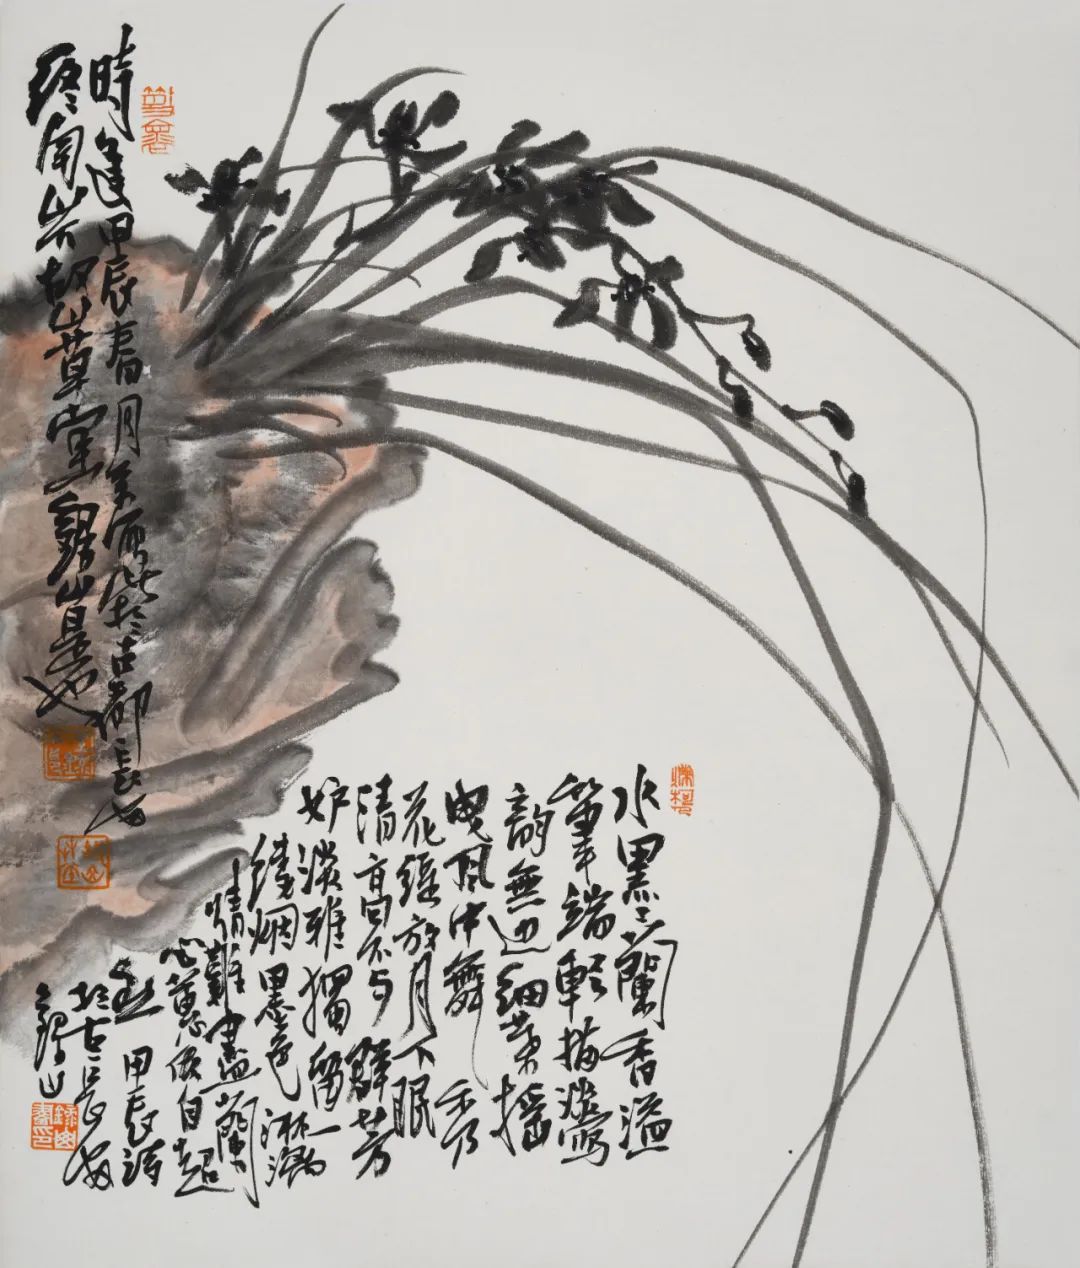 時逢甲辰春月余画此於古都長安
終南山草堂錦山是也
水墨蘭香溢
筆端輕描淡寫
韵無边细葉摇
曳風中舞秀
花绽放月下眠
清高不与群芳
妒淡雅獨留一
缕烟墨色淋漓
情難盡蘭
心蕙质自超
然 甲辰诗
於古長安
錦山